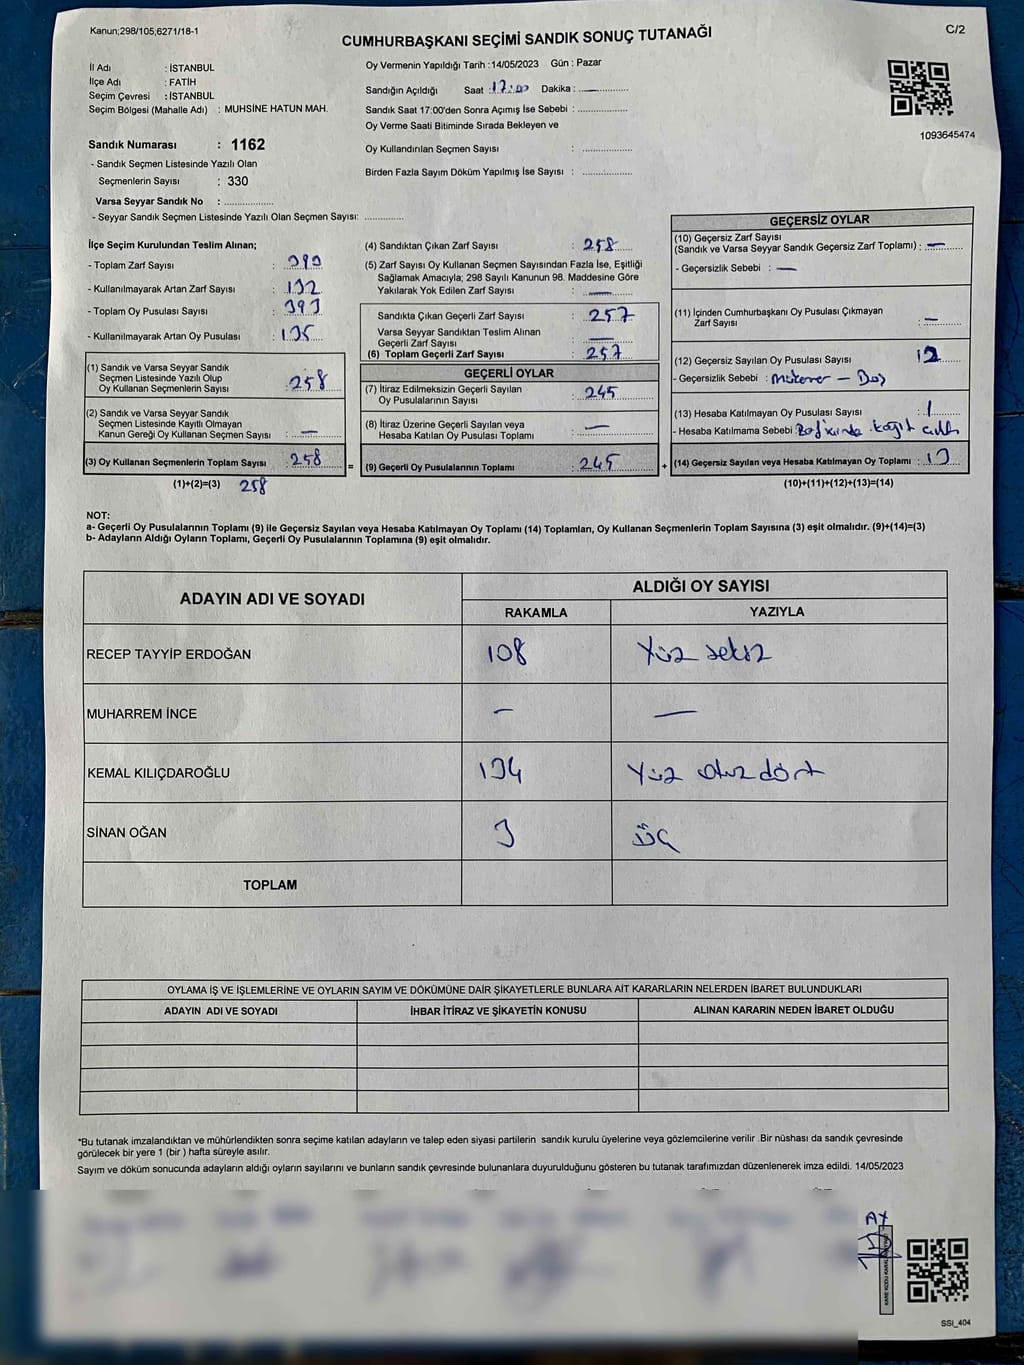 Kanun;298/105,6271/18-1
C/2
CUMHURBAŞKANI SEÇİMİ SANDIK SONUÇ TUTANAĞI
İl Adı : İSTANBUL
İlçe Adı : FATİH
Seçim Çevresi : İSTANBUL
Seçim Bölgesi (Mahalle Adı) : MUHSİNE HATUN MAH.
Sandık Numarası : 1162
- Sandık Seçmen Listesinde Yazılı Olan
Seçmenlerin Sayısı : 330
Varsa Seyyar Sandık No : ..............
- Seyyar Sandık Seçmen Listesinde Yazılı Olan Seçmen Sayısı: ............
Oy Vermenin Yapıldığı Tarih :14/05/2023 Gün : Pazar
Sandığın Açıldığı Saat :17:00 Dakika : —
Sandık Saat 17:00'den Sonra Açımış İse Sebebi : ..............
Oy Verme Saati Bitiminde Sırada Bekleyen ve
Oy Kullandırılan Seçmen Sayısı : ..............
Birden Fazla Sayım Döküm Yapılmış İse Sayısı : ..............
1093645474
İlçe Seçim Kurulundan Teslim Alınan;
- Toplam Zarf Sayısı : 390
- Kullanılmayarak Artan Zarf Sayısı : 132
- Toplam Oy Pusulası Sayısı : 393
- Kullanılmayarak Artan Oy Pusulası : 135
(1) Sandık ve Varsa Seyyar Sandık
Seçmen Listesinde Yazılı Olup
Oy Kullanan Seçmenlerin Sayısı : 258
(2) Sandık ve Varsa Seyyar Sandık
Seçmen Listesinde Kayıtlı Olmayan
Kanun Gereği Oy Kullanan Seçmen Sayısı : —
(3) Oy Kullanan Seçmenlerin Toplam Sayısı : 258
(1)+(2)=(3) 258
(4) Sandıktan Çıkan Zarf Sayısı : 258
(5) Zarf Sayısı Oy Kullanan Seçmen Sayısından Fazla İse, Eşitliği
Sağlamak Amacıyla; 298 Sayılı Kanunun 98. Maddesine Göre
Yakılarak Yok Edilen Zarf Sayısı : —
Sandıkta Çıkan Geçerli Zarf Sayısı : 257
Varsa Seyyar Sandıktan Teslim Alınan
Geçerli Zarf Sayısı : —
(6) Toplam Geçerli Zarf Sayısı : 257
GEÇERLİ OYLAR
(7) İtiraz Edilmeksizin Geçerli Sayılan
Oy Pusulalarının Sayısı : 245
(8) İtiraz Üzerine Geçerli Sayılan veya
Hesaba Katılan Oy Pusulası Toplamı : —
= (9) Geçerli Oy Pusulalarının Toplamı : 245
GEÇERSİZ OYLAR
(10) Geçersiz Zarf Sayısı
(Sandık ve Varsa Seyyar Sandık Geçersiz Zarf Toplamı) : —
- Geçersizlik Sebebi : —
(11) İçinden Cumhurbaşkanı Oy Pusulası Çıkmayan
Zarf Sayısı : —
(12) Geçersiz Sayılan Oy Pusulası Sayısı 12
- Geçersizlik Sebebi : Mükerrer – Boş
(13) Hesaba Katılmayan Oy Pusulası Sayısı : 1
- Hesaba Katılmama Sebebi: kağıt
+ (14) Geçersiz Sayılan veya Hesaba Katılmayan Oy Toplamı : 13
(10)+(11)+(12)+(13)=(14)
NOT:
a- Geçerli Oy Pusulalarının Toplamı (9) ile Geçersiz Sayılan veya Hesaba Katılmayan Oy Toplamı (14) Toplamları, Oy Kullanan Seçmenlerin Toplam Sayısına (3) eşit olmalıdır. (9)+(14)=(3)
b- Adayların Aldığı Oyların Toplamı, Geçerli Oy Pusulalarının Toplamına (9) eşit olmalıdır.
ADAYIN ADI VE SOYADI ALDIĞI OY SAYISI
RAKAMLA YAZIYLA
RECEP TAYYİP ERDOĞAN 108 Yüz sekiz
MUHARREM İNCE — —
KEMAL KILIÇDAROĞLU 134 Yüz otuz dört
SİNAN OĞAN 3 üç
TOPLAM
OYLAMA İŞ VE İŞLEMLERİNE VE OYLARIN SAYIM VE DÖKÜMÜNE DAİR ŞİKAYETLERLE BUNLARA AİT KARARLARIN NELERDEN İBARET BULUNDUKLARI
ADAYIN ADI VE SOYADI İHBAR İTİRAZ VE ŞİKAYETİN KONUSU ALINAN KARARIN NEDEN İBARET OLDUĞU
*Bu tutanak imzalandıktan ve mühürlendikten sonra seçime katılan adayların ve talep eden siyasi partilerin sandık kurulu üyelerine veya gözlemcilerine verilir .Bir nüshası da sandık çevresinde
görülecek bir yere 1 (bir ) hafta süreyle asılır.
Sayım ve döküm sonucunda adayların aldığı oyların sayılarını ve bunların sandık çevresinde bulunanlara duyurulduğunu gösteren bu tutanak tarafımızdan düzenlenerek imza edildi. 14/05/2023
SSI_404